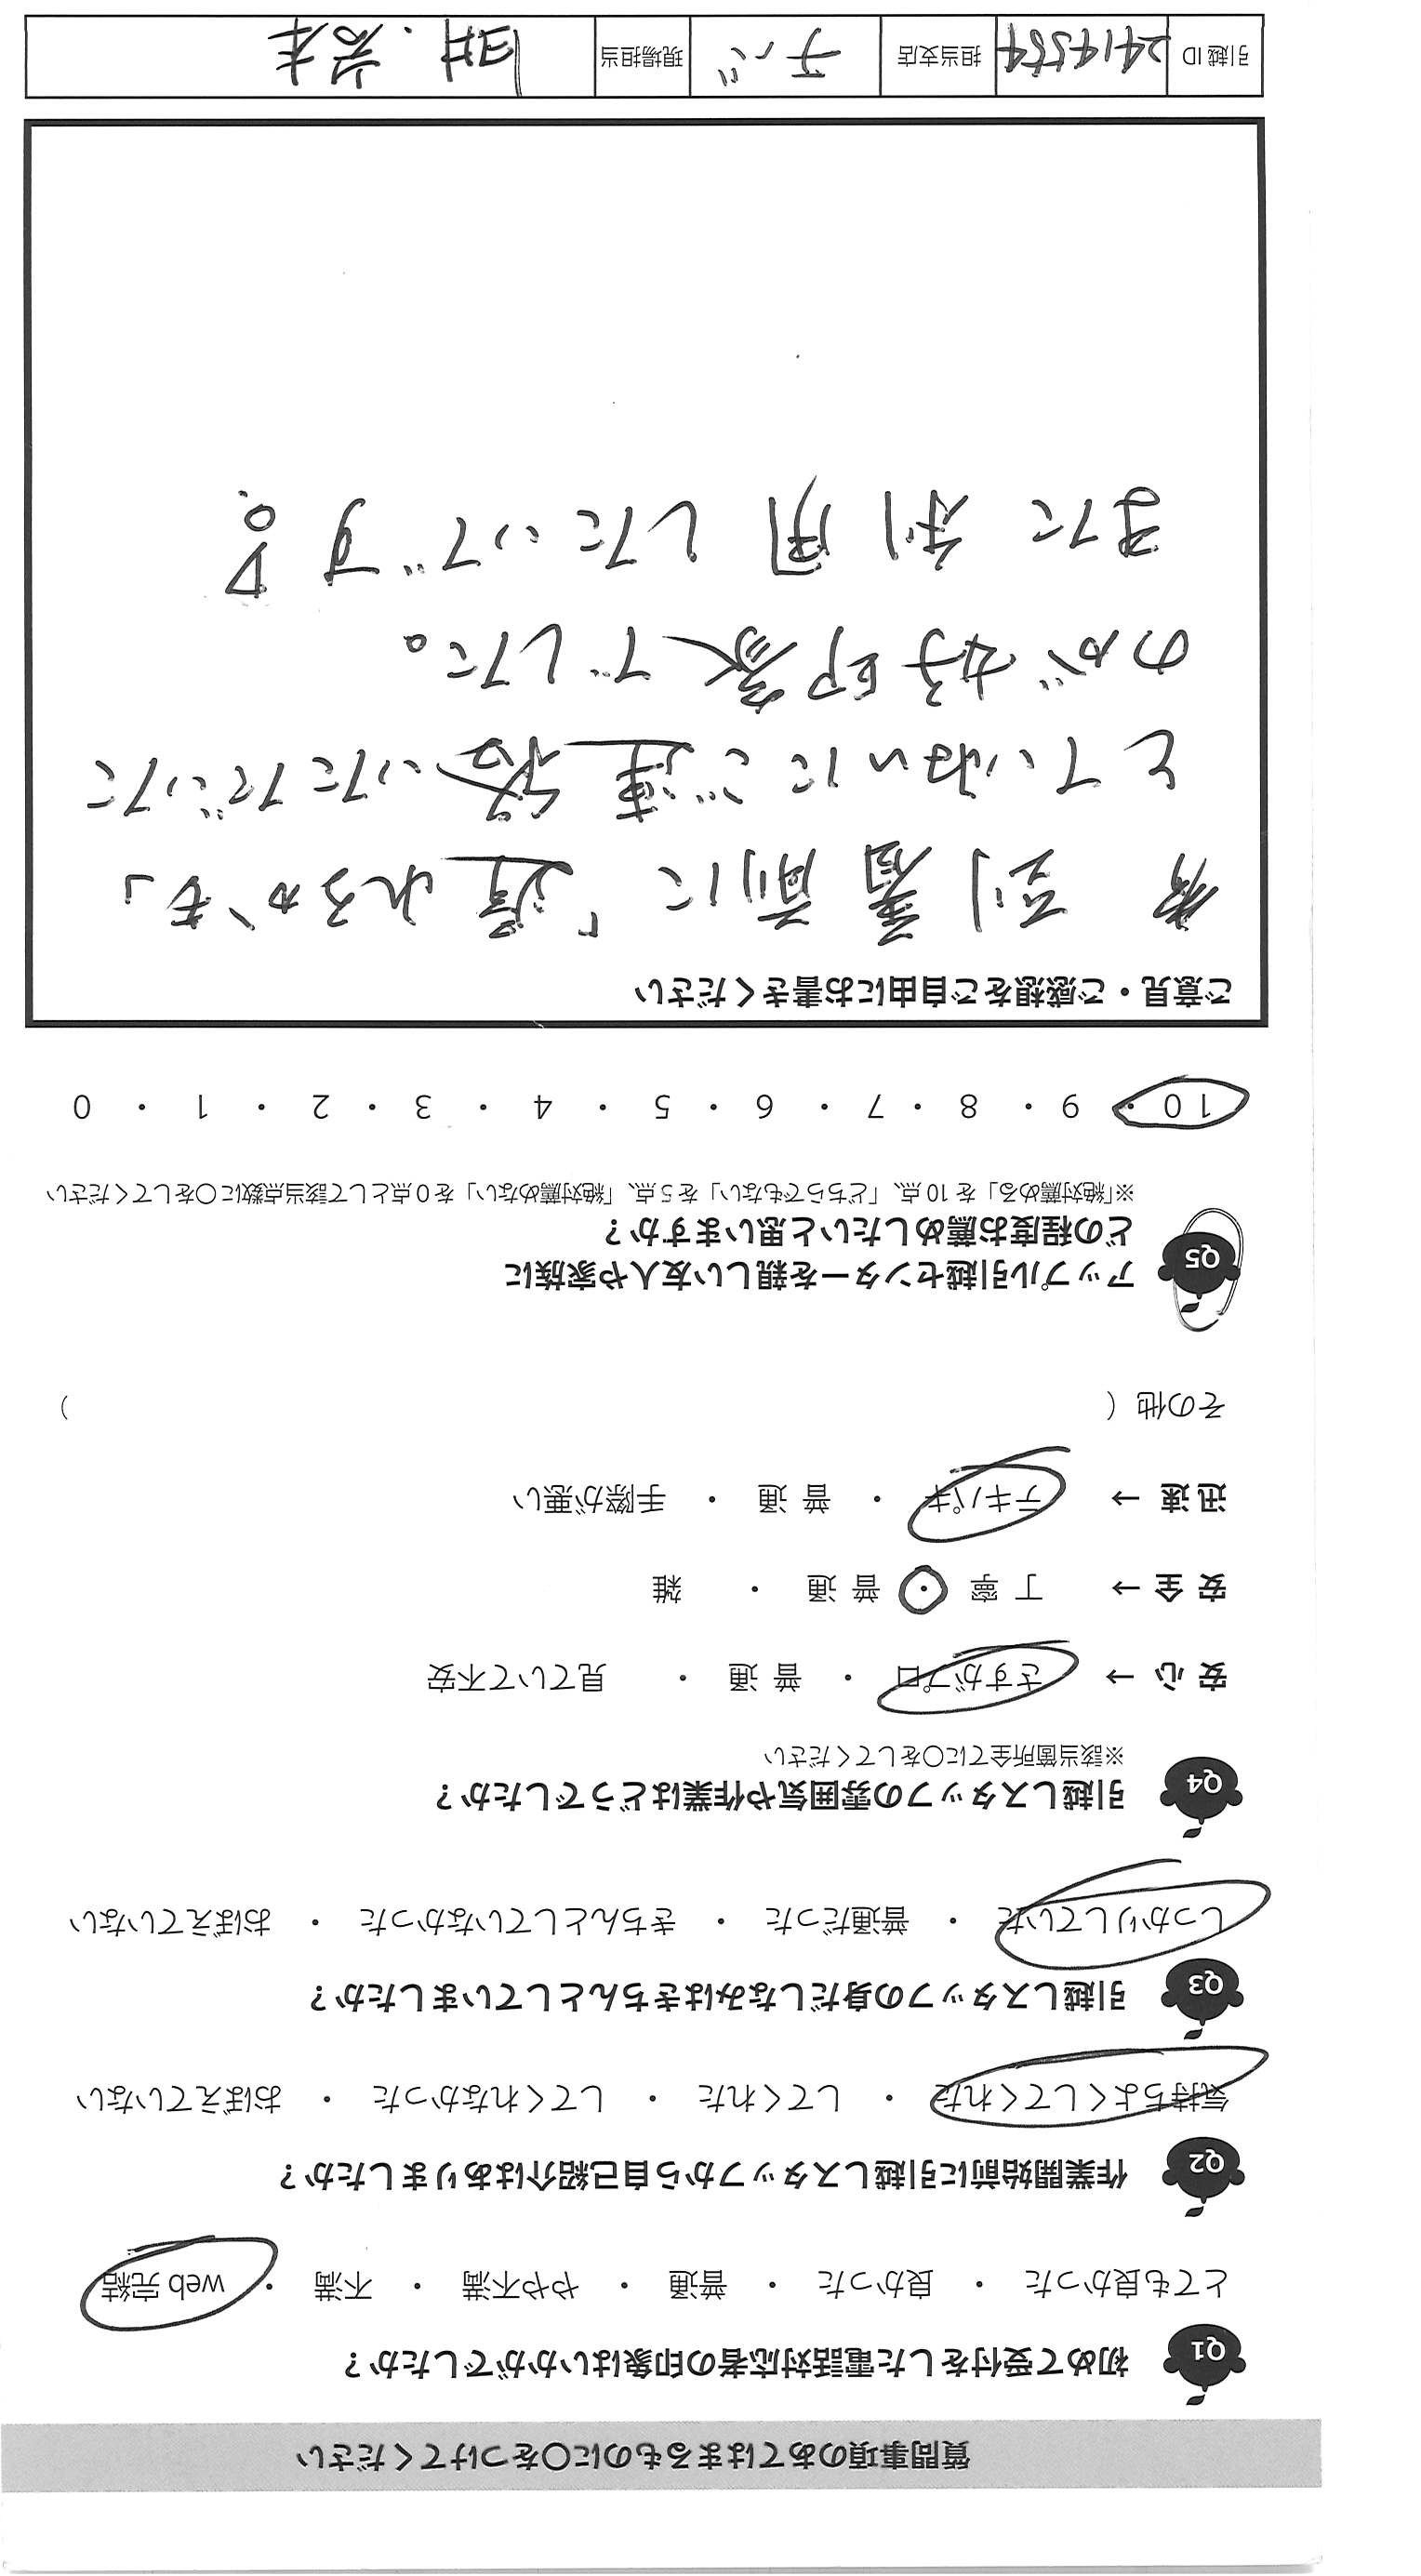 質問事項のあてはまるものに〇をつけてください
Q1 初めて受付をした電話対応者の印象はいかがでしたか？
とても良かった ・ 良かった ・ 普通 ・ やや不満 ・ 不満 ・ web 完結
Q2 作業開始前に引越しスタッフから自己紹介はありましたか？
気持ちよくしてくれた ・ してくれた ・ してくれなかった ・ おぼえていない
Q3 引越しスタッフの身だしなみはきちんとしていましたか？
しっかりしていた ・ 普通だった ・ きちんとしていなかった ・ おぼえていない
Q4 引越しスタッフの雰囲気や作業はどうでしたか？
※該当箇所全てに〇をしてください
安 心 → さすがプロ ・ 普 通 ・ 見ていて不安
安 全 → 丁 寧 ・ 普 通 ・ 雑
迅 速 → テキパキ ・ 普 通 ・ 手際が悪い
その他（ ）
Q5 アップル引越センターを親しい友人や家族に
どの程度お薦めしたいと思いますか？
※「絶対薦める」を 10 点、「どちらでもない」を 5 点、「絶対薦めない」を 0 点として該当点数に〇をしてください
10 ・ 9 ・ 8 ・ 7 ・ 6 ・ 5 ・ 4 ・ 3 ・ 2 ・ 1 ・ 0
ご意見・ご感想をご自由にお書きください
到着前に「遅れるかも」
とていねいにご連絡いただいた
のが好印象でした。
また利用したいです
引越 ID 2414554 担当支店 チバ 現場担当 臼井. 岩本